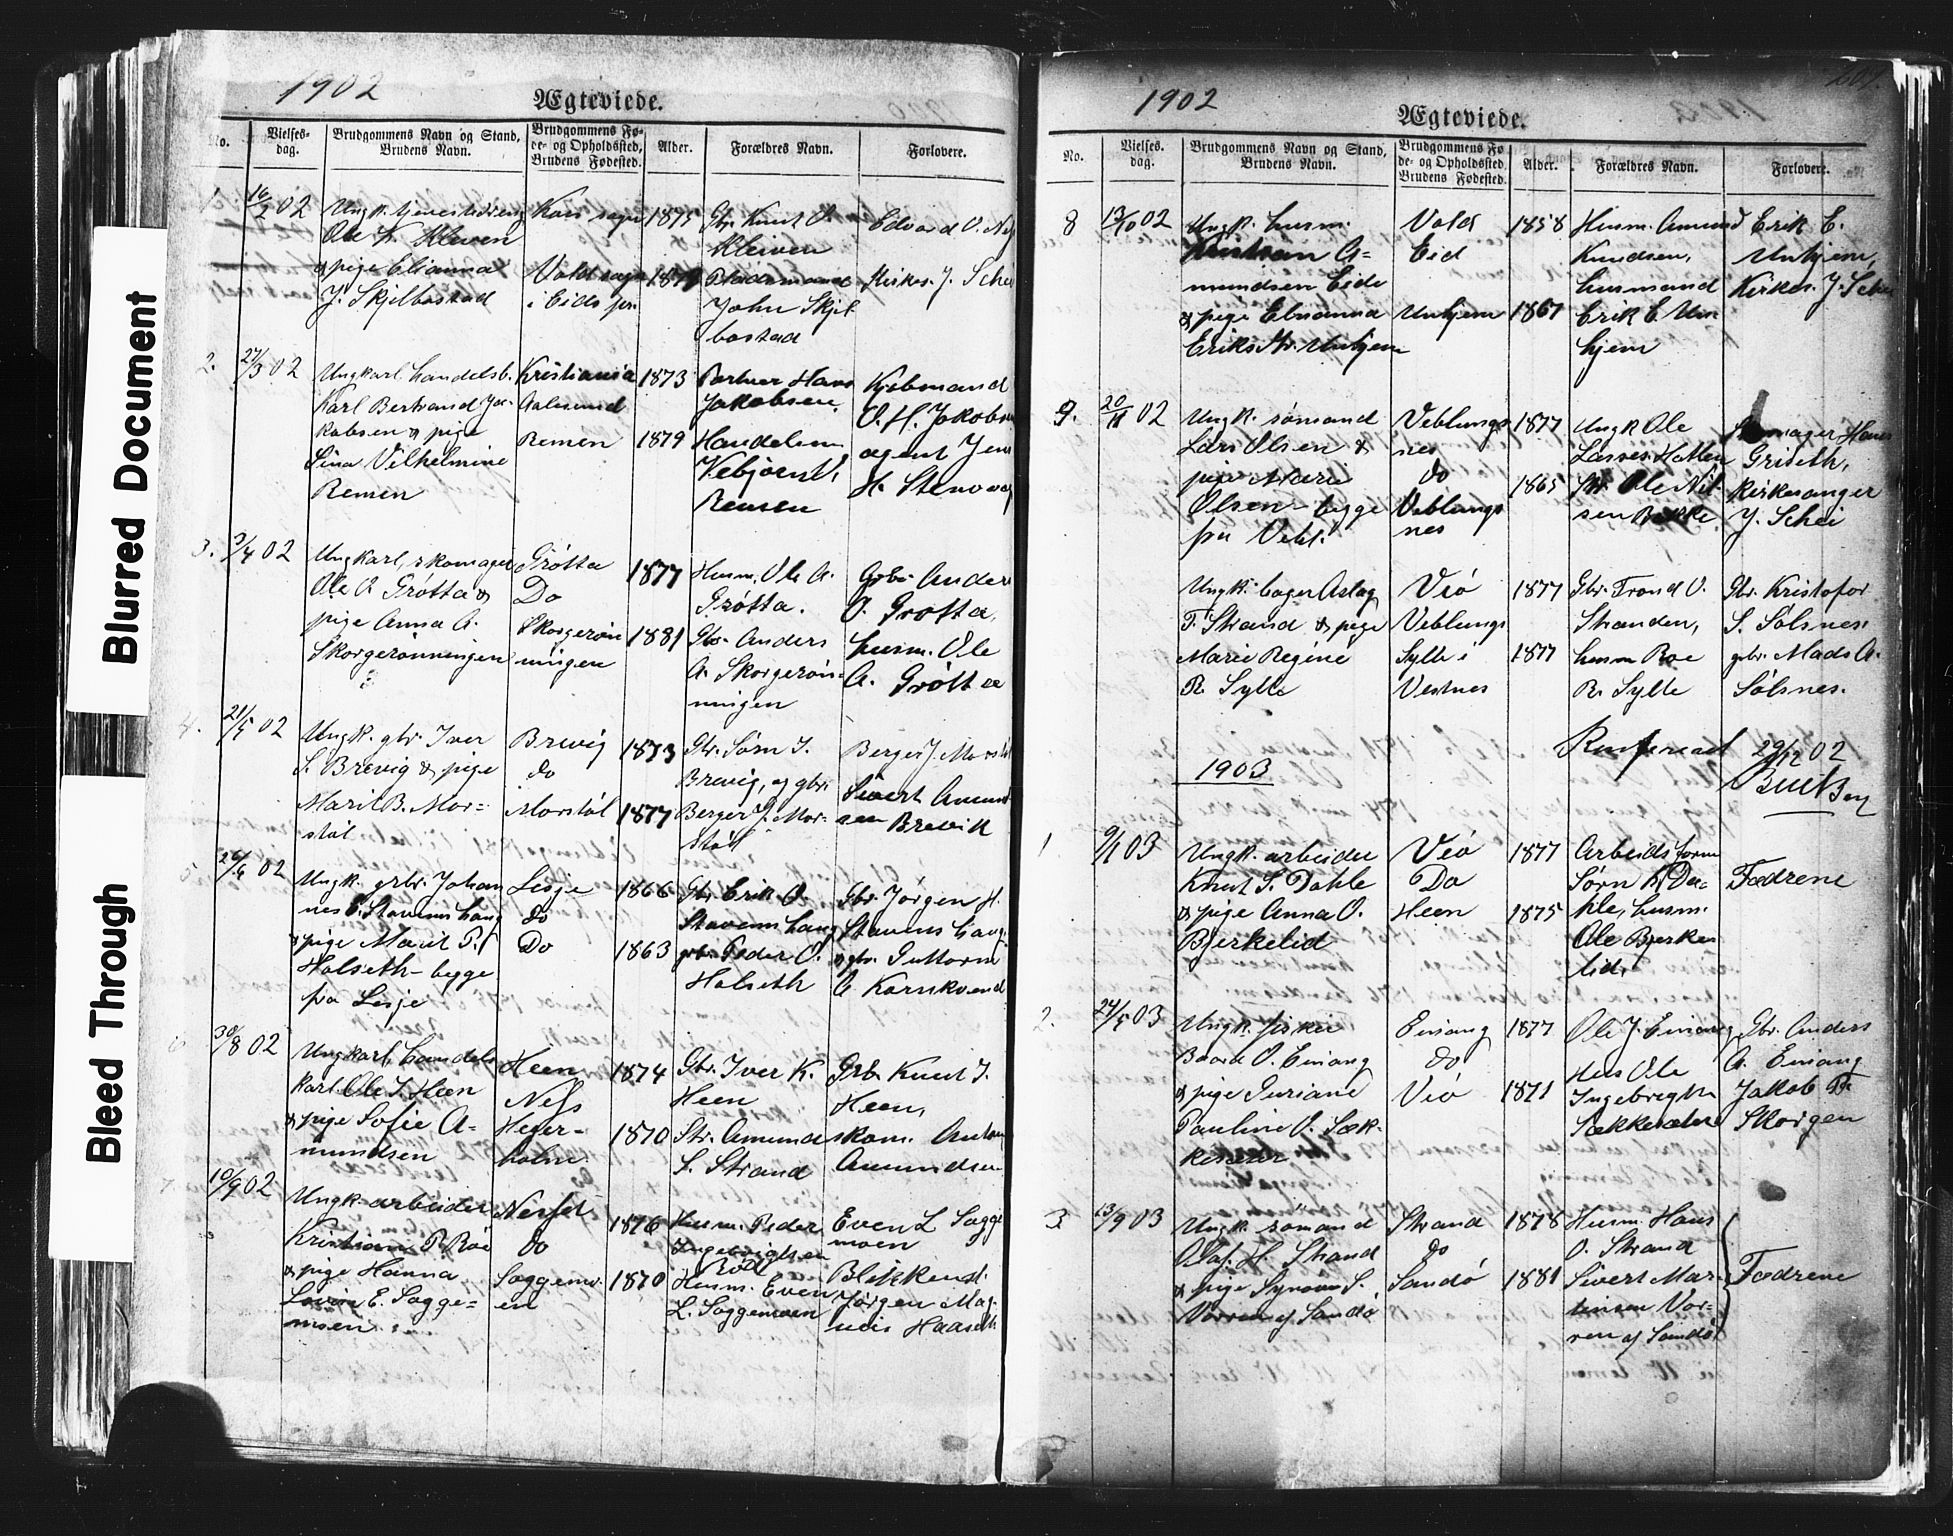 Blurred Document
Bleed Through
1902
Ægteviede.
No.
Vielses-
dag.
Brudgommens Navn og Stand,
Brudens Navn.
Brudgommens Fø-
de- og Opholdssted,
Brudens Fødested.
Alder.
Forældres Navn.
Forlovere.
1.
16/2 02
Ole K. Kleven
& pige Elianna
J. Skjelbostad
Vold sogn
i Eids pr.
1875
1879
Gbr. Knut O.
Kleiven
Pladsmand
John Skjel
bostad
Edvard O. Nes
Kirkes. J. Schei
2.
27/3 02
Ungkarl handelsb.
Karl Bertrand Ja-
kobsen & pige
Lina Vilhelmine
Remen
Kristiania
Aalesund
Remen
1873
1879
Hans
Jakobsen,
Handelsm.
Vebjørn
Remen
Kjøbmand
O. H. Jakobsen
agent Jens
H. Stenvaag
3.
3/4 02
Ungkarl, skomager
Ole O. Grøtta &
pige Anna A.
Skorgerønningen
Grøtta
Do
Skorgerøn
ningen
1877
1881
Husm. Ole A.
Grøtta.
Gbr. Anders
A. Skorgerøn-
ningen
Gbr. Anders
O. Grøtta,
husm. Ole
A. Grøtta
4.
21/5 02
Ungk. gbr. Iver
S. Brevig & pige
Marit B. Mor-
støl
Brevig
do
Morstøl
1873
1877
Gbr. Sørn I.
Brevig, og gbr.
Berger J. Mor-
støl
Berger J. Morstøl
Sivert Amund
sen Brevik
5.
26/6 02
Ungk. grbr. Johan
nes E. Stavemshaug
& pige Marit P.
Holseth - begge
fra Lesje
Lesje
do
Do
1866
1863
Gbr. Erik O.
Stavemshaug
grbr. Peder O.
Holseth
Gbr. Jørgen H.
Stavemshaug
& gbr. Guttorm
O Kornkvend
6
30/8 02
Ungkarl, handels
karl Ole I. Heen
& pige Sofie A-
mundsen
Heen
Nes
Heger-
holm
1874
1870
Gbr. Iver K.
Heen
Str. Amund
S. Strand
Grb. Knut I.
Heen,
skom. Anton
Amundsen
7
10/9 02
Ungk. arbeider
Kristian P. Rød
& pige Hanna
Lovise E. Sogge-
moen
Nesset
do
Soggemo-
en
1876
1870
Husm. Peder
Ingebrigtsen
Rød
Husm. Even
L. Soggemoen
Even L Sogge
moen
Blikkensl.
Jørgen Mag-
nus Haaseth
1902
Ægteviede.
No.
Vielses-
dag.
Brudgommens Navn og Stand,
Brudens Navn.
Brudgommens Fø-
de- og Opholdssted,
Brudens Fødested.
Alder.
Forældres Navn.
Forlovere.
8
13/10 02
Ungk. husm.
Kristian A-
mundsen Eide
& pige Elnanna
Eriksdtr. Unhjem
Vold
Eid
Unhjem
1858
1867
Husm. Amund
Knudsen,
husmand
Erik E. Un
hjem
Erik E.
Unhjem,
Kirkes. J. Schei
9.
20/11 02
Ungk. sømand
Lars Olsen &
pige Marie
Olsen - begge
fra Vebl.
Veblungs
nes
do
Veblungs
nes
1877
1865
Ungk Ole
Hatlen
Ole Nil-
sen Bakke
Hans
Griseth,
Kirkesanger
J. Schei
Ungk. bager Aslag
T. Strand & pige
Marie Regine
R. Sylte
Veø
Veblungs
Sylte i
Vestnes
1877
1877
Gbr. Trond O.
Stranden,
husm Roe
R. Sylte
Gbr. Kristofer
S. Sølsnes.
gbr. Mads A.
Sølsnes.
29/12 02
1903
1
9/1 03
Ungk. arbeider
Knut S. Dahle
& pige Anna O.
Bjerkelid
Veø
Do
Heen
1877
1875
Arbeidsform
Sørn K. Da-
hle, husm.
Ole Bjerke
lid.
Fædrene
2.
24/5 03
Ungk. fisker
Baard O. Einang
& pige Juriane
Pauline O. Sæk-
keseter
Einang
do
Veø
1877
1871
Ole J. Einang
Hus Ole
Ingebrigtn
Sækkesætre
Gbr. Anders
A. Einang
Jakob
Skorgen
3
13/9 03
Ungk. sømand
Olaf H. Strand
& pige Synøve S.
Vorren af Sandø
Strand
do
Sandø
1878
1881
Husm. Hans
O. Strand
Sivert Mar-
tinsen Vor-
ren af Sandø
Fædrene